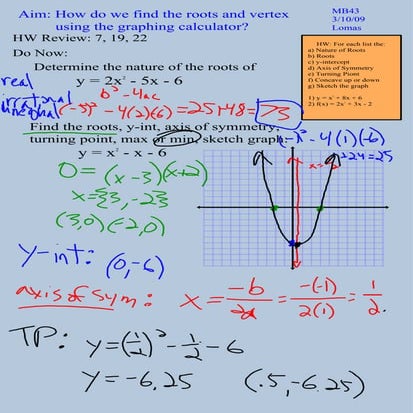 Aim: How do we find the roots and vertex
using the graphing calculator?
MB43
3/10/09
Lomas
HW Review: 7, 19, 22
Do Now:
HW: For each list the:
a) Nature of Roots
b) Roots
c) y-intercept
d) Axis of Symmetry
e) Turning Point
f) Concave up or down
g) Sketch the graph
1) y = x² - 8x + 6
2) f(x) = 2x² + 3x - 2
Determine the nature of the roots of
y = 2x² - 5x - 6
real
irrational
unequal
b² - 4ac
(-5)² - 4(2)(6) = 25+48 = 73
Find the roots, y-int, axis of symmetry,
turning point, max or min, sketch graph
y = x² - x - 6
- 4(1)(-6)
+24=25
0 = (x-3)(x+2)
x = {3, -2}
(3,0) (-2,0)
y-int: (0,-6)
axis of sym: x = -b/2a = -(-1)/2(1) = 1/2
TP: y = (1/2)² - 1/2 - 6
y = -6.25 (.5, -6.25)